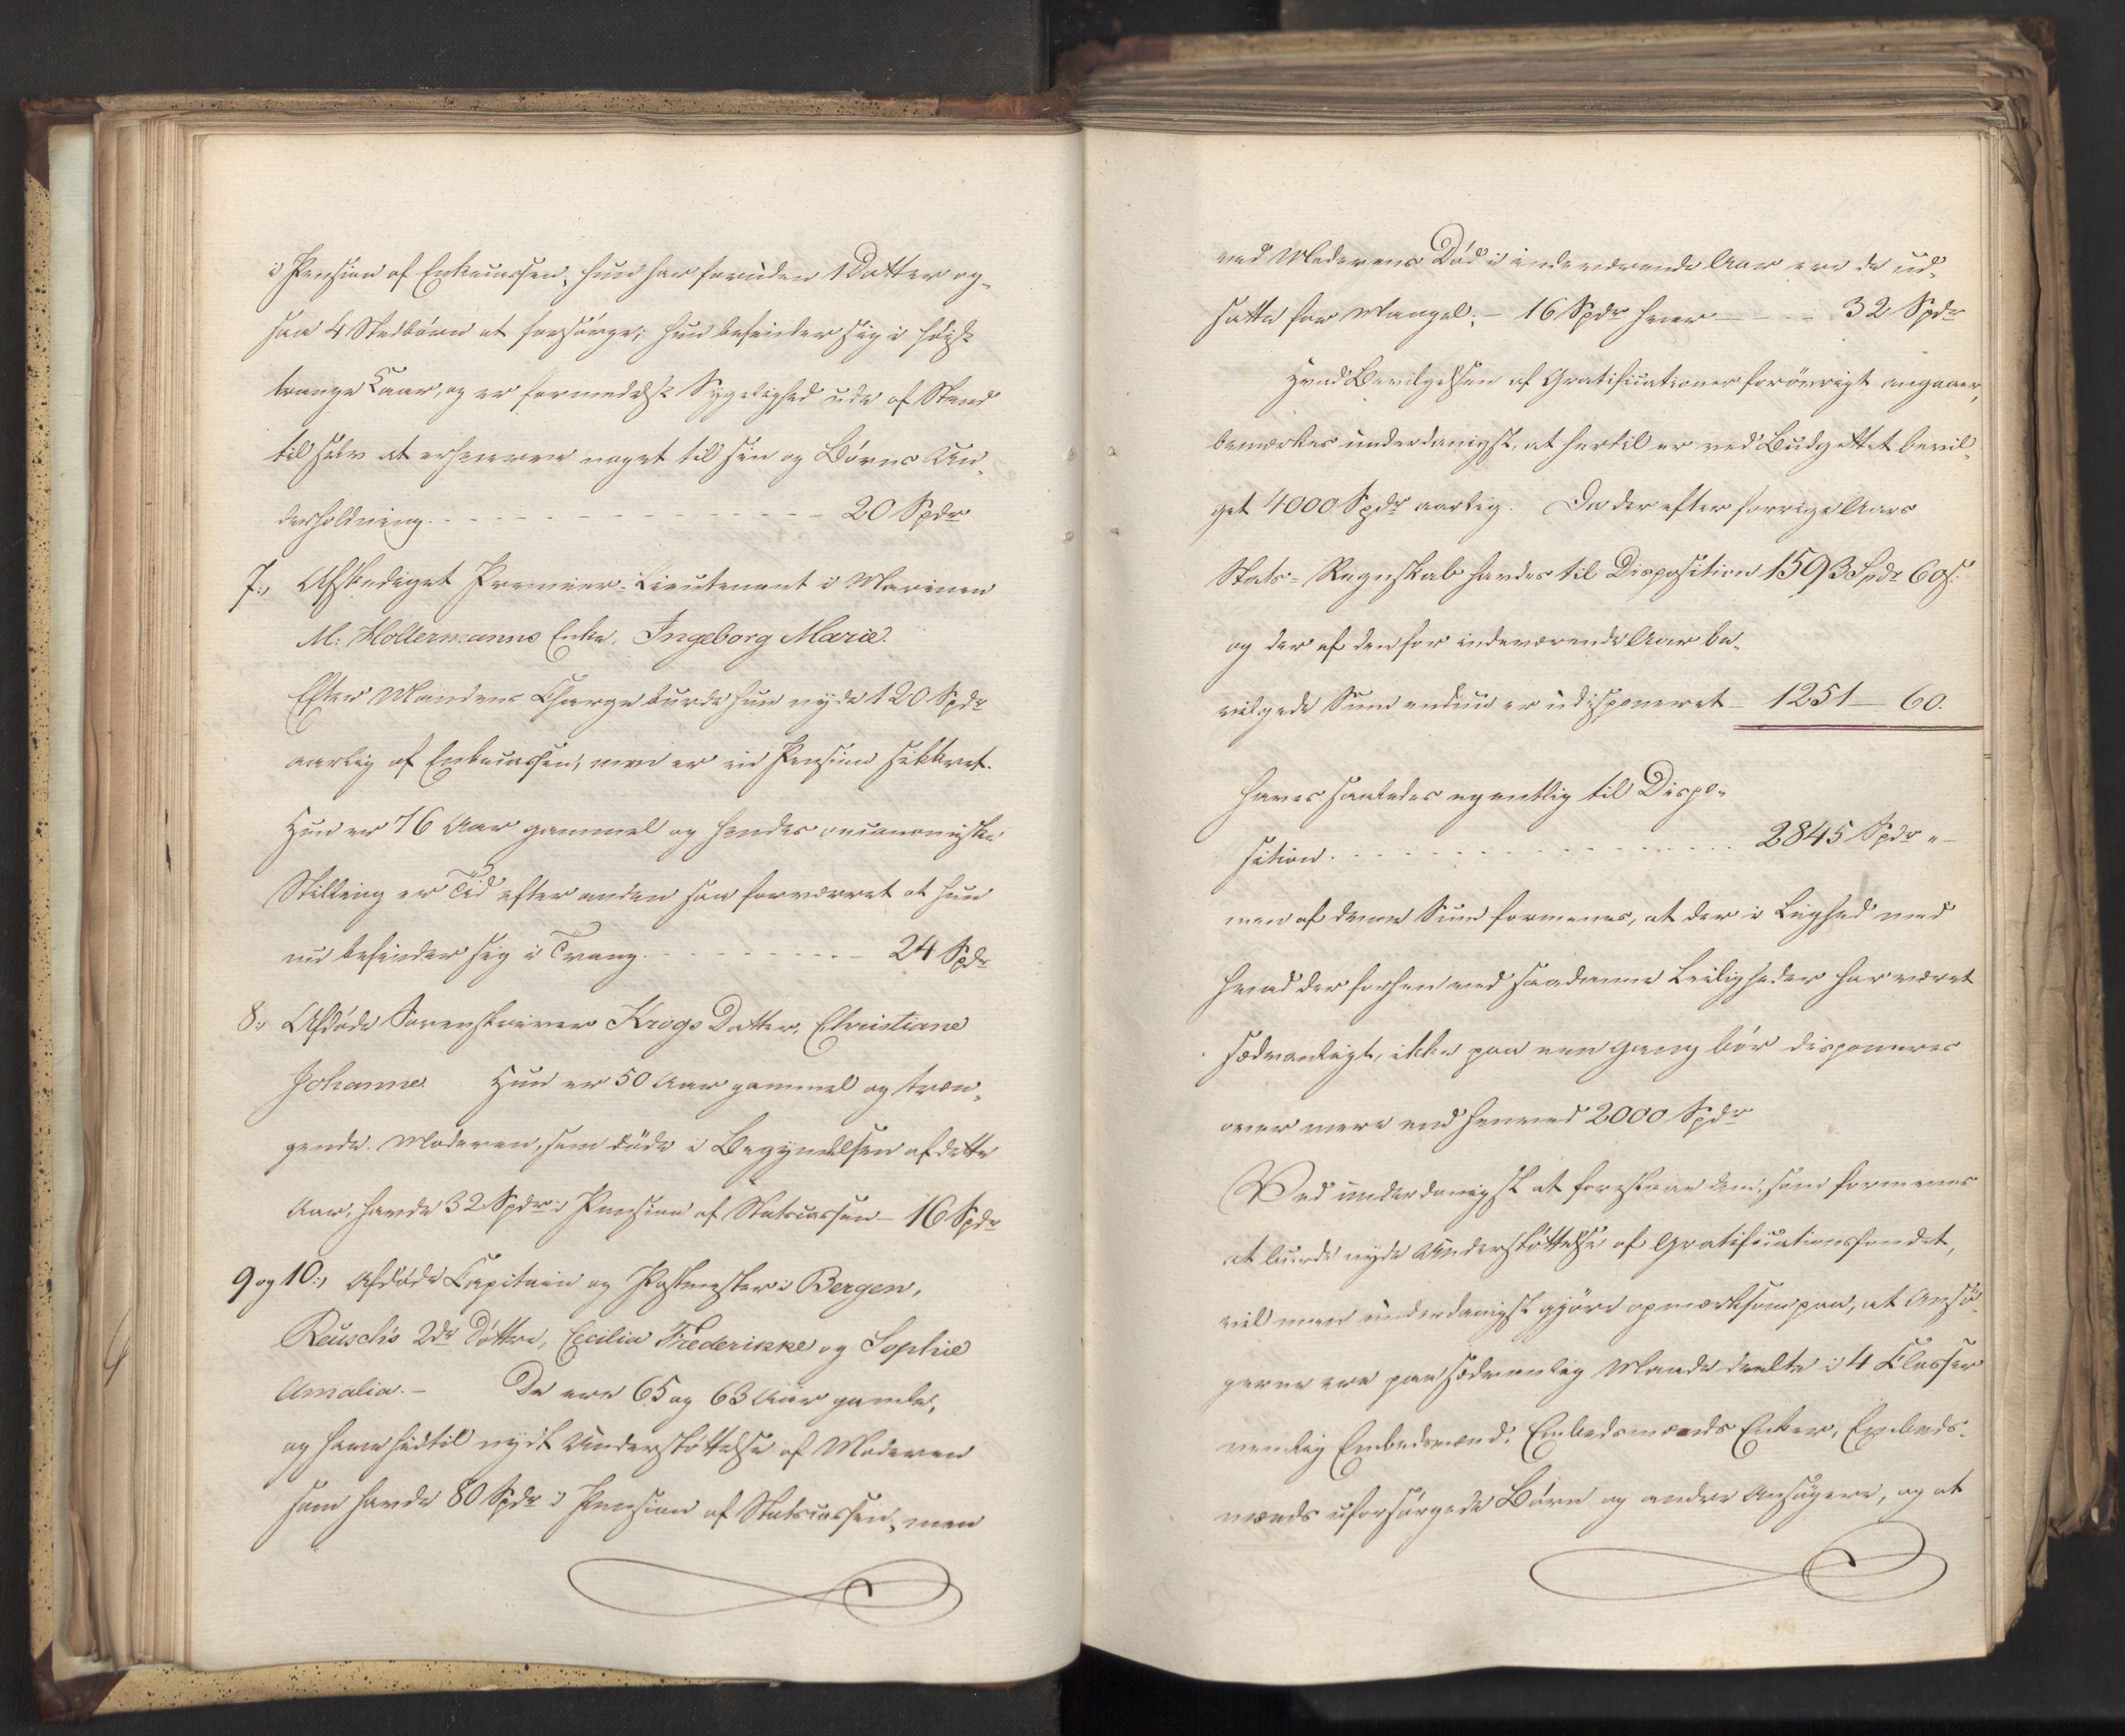 i Pension af Enkecassen; hun har foruden 1 Datter og-
saa 4 Stedbörn at forsörge; hun befinder sig i höist
trange Kaar, og er formedelst Sygelighed ude af Stand
til selv at erhverve noget til sin og Börns Un-
derholdning. - - - - - - - - - - 20 Spdr
7:, Afskediget Premier-Lieutenant i Marinen
M: Holtermanns Enke, Ingeborg Marie.
Efter Mandens Charge burde hun nyde 120 Spdr
aarlig af Enkecassen, men er ei Pension sikkret.
Hun er 76 Aar gammel og hendes oeconomiske
Stilling er Tid efter anden saa forværret at hun
nu befinder sig i Trang. - - - - - - 24 Spdr
8:, Afdöde Sorenskriver Krogs Datter, Christiane
Johanne. Hun er 50 Aar gammel og træn-
gende. Moderen, som döde i Begyndelsen af dette
Aar, havde 32 Spdr i Pension af Statscassen - 16 Spdr
9 og 10:, Afdöde Capitain og Postmester i Bergen,
Reuschs 2de Döttre, Cecilia Frederikke og Sophie
Amalia. - De ere 65 og 63 Aar gamle,
og have hidtil nydt Understöttelse af Moderen
som havde 80 Spdr i Pension af Statscassen, men
ved Moderens Död i indeværende Aar ere de ud-
satte for Mangel; - 16 Spdr hver - - - 32 Spdr
Hvad Bevilgelsen af Gratificationer forövrigt angaaer,
bemærkes underdanigst, at hertil er ved Budgettet bevil-
get 4000 Spdr aarlig. Da der efter forrige Aars
Stats-Regnskab havdes til Disposition 1593 Spdr 60 s:
og der af den for indeværende Aar be-
vilgede Sum endnu er udisponeret - 1251 - 60.
haves saaledes egentlig til Dispo-
sition. - - - - - - - - - - 2845 Spdr "-
men af denne Sum formenes, at der i Liighed med
hvad der forhen ved saadanne Leiligheder har været
sædvanligt, ikke paa een Gang bör disponeres
over mere end henved 2000 Spdr
Ved underdanigst at foreslaae dem, som formenes
at burde nyde Understöttelse af Gratificationsfondet,
vil man underdanigst gjöre opmærksom paa, at Ansö-
gerne ere paa sædvanlig Maade deelte i 4 Klasser
nemlig Embedsmænd, Embedsmænds Enker, Embeds-
mænds uforsörgede Börn og andre Ansögere, og at